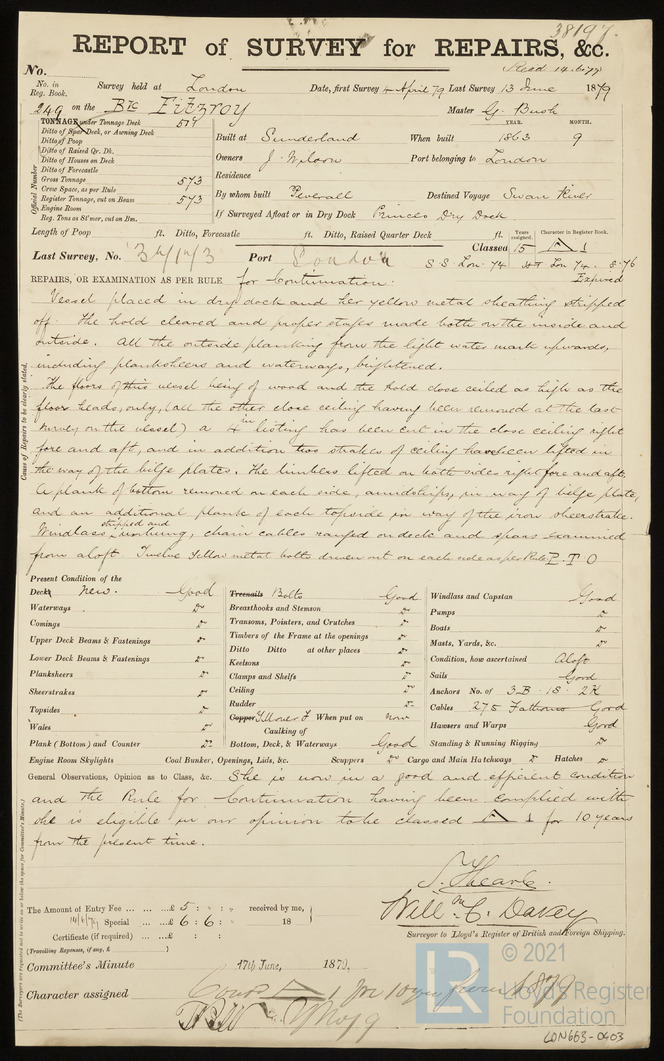 38197.
REPORT of SURVEY for REPAIRS, &c.
Recd 14.6.79
No.
No. in Reg. Book. Survey held at London Date, first Survey 4 April 79 Last Survey 13 June 1879
249 on the Bk Fitzroy Master G. Bush
TONNAGE under Tonnage Deck 577
Ditto of Spar Deck, or Awning Deck
Ditto of Poop
Ditto of Raised Qr. Dk.
Ditto of Houses on Deck
Ditto of Forecastle
Gross Tonnage 573
Crew Space, as per Rule
Register Tonnage, cut on Beam 573
Engine Room
Reg. Tons as St'mer, cut on Bm.
Official Number
YEAR. MONTH.
Built at Sunderland When built 1863 9
Owners J. Wilson Port belonging to London
Residence
By whom built Peverall Destined Voyage Swan River
If Surveyed Afloat or in Dry Dock Princes Dry Dock
Length of Poop ft. Ditto, Forecastle ft. Ditto, Raised Quarter Deck ft. Years assigned. Character in Register Book.
Classed 15 A 1
Last Survey, No. Port London
S S Lon. 74 Lon 74. 8.76
Expired
REPAIRS, OR EXAMINATION AS PER RULE for Continuation.
Vessel placed in dry dock and her yellow metal sheathing stripped
off. The hold cleared and proper stages made both on the inside and
outside. All the outside planking from the light water mark upwards,
including planksheers and waterways, brightened.
The floors of this vessel being of wood and the hold close ceiled as high as the
floor heads, only, (all the other close ceiling having been removed at the last
survey on the vessel) a 4 in listing has been cut in the close ceiling right
fore and aft, and in addition two strakes of ceiling have been lifted in
the way of the bilge plates. The limbers lifted on both sides right fore and aft.
A plank of bottom removed on each side, amidships, in way of bilge plate,
and an additional plank of each topside in way of the iron sheerstrake.
Windlass stripped and working, chain cables ranged on deck and spars examined
from aloft Twelve Yellow metal bolts driven out on each side as per Rule P.T.O
Cause of Repairs to be clearly stated.
Present Condition of the
Deck New. Good
Waterways "
Comings "
Upper Deck Beams & Fastenings "
Lower Deck Beams & Fastenings "
Planksheers "
Sheerstrakes "
Topsides "
Wales "
Plank (Bottom) and Counter "
Treenails Bolts Good
Breasthooks and Stemson "
Transoms, Pointers, and Crutches "
Timbers of the Frame at the openings "
Ditto Ditto at other places "
Keelsons "
Clamps and Shelfs "
Ceiling "
Rudder "
Copper When put on now
Caulking of
Bottom, Deck, & Waterways Good
Windlass and Capstan Good
Pumps "
Boats "
Masts, Yards, &c. "
Condition, how ascertained Aloft
Sails Good
Anchors No. of 3 B. 1 S. 2 K
Cables 275 Fathoms Good
Hawsers and Warps Good
Standing & Running Rigging "
Engine Room Skylights Coal Bunker, Openings, Lids, &c. Scuppers " Cargo and Main Hatchways " Hatches "
General Observations, Opinion as to Class, &c. She is now in a good and efficient condition
and the Rule for Continuation having been complied with
she is eligible in our opinion to be classed A 1 for 10 years
from the present time.
(The Surveyors are requested not to write on or below the space for Committee's Minute.)
The Amount of Entry Fee ... ... £ 5 : " : " received by me,
14/6/79 Special ... ... £ 6 : 6 : " 18
Certificate (if required) ... £ : :
(Travelling Expenses, if any, £ )
Will m C. Davey
Surveyor to Lloyd's Register of British and Foreign Shipping.
Committee's Minute 17th June, 1879.
Character assigned A 1 for 10 years from 1879
LR © 2021
Lloyd's Register
Foundation
LON663-0403